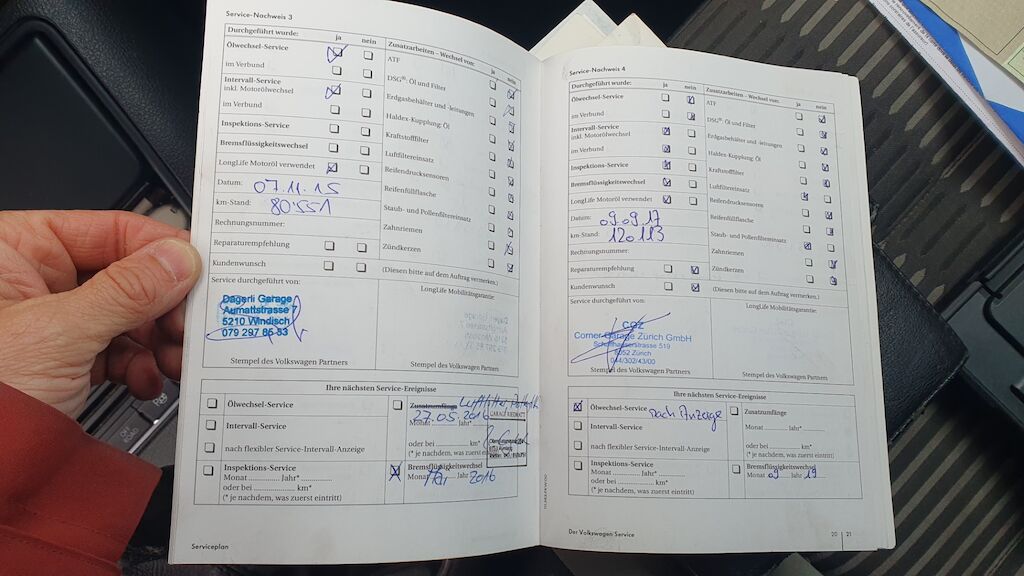 Service-Nachweis 3
Durchgeführt wurde: ja nein
Zusatzarbeiten – Wechsel von: ja nein
Ölwechsel-Service
im Verbund
Intervall-Service
inkl. Motorölwechsel
im Verbund
Inspektions-Service
Bremsflüssigkeitswechsel
LongLife Motoröl verwendet
Datum: 07.11.15
km-Stand: 80551
Rechnungsnummer:
Reparaturempfehlung
Kundenwunsch
ATF
DSG®: Öl und Filter
Erdgasbehälter und -leitungen
Haldex-Kupplung: Öl
Kraftstofffilter
Luftfiltereinsatz
Reifendrucksensoren
Reifenfüllflasche
Staub- und Pollenfiltereinsatz
Zahnriemen
Zündkerzen
(Diesen bitte auf dem Auftrag vermerken.)
Service durchgeführt von:
Dägerli Garage
Aumattstrasse 7
5210 Windisch
079 297 65 83
Stempel des Volkswagen Partners
LongLife Mobilitätsgarantie:
Stempel des Volkswagen Partners
Ihre nächsten Service-Ereignisse
Ölwechsel-Service
Intervall-Service
nach flexibler Service-Intervall-Anzeige
Inspektions-Service
Monat ............ Jahr*
oder bei ............ km*
(* je nachdem, was zuerst eintritt)
Zusatzumfänge Luftfilter
27.05.2016
Monat Jahr*
oder bei km*
(* je nachdem, was zuerst eintritt)
Bremsflüssigkeitswechsel
Monat Mai Jahr 2016
Serviceplan
Service-Nachweis 4
Durchgeführt wurde: ja nein
Zusatzarbeiten – Wechsel von: ja nein
Ölwechsel-Service
im Verbund
Intervall-Service
inkl. Motorölwechsel
im Verbund
Inspektions-Service
Bremsflüssigkeitswechsel
LongLife Motoröl verwendet
Datum: 09.09.17
km-Stand: 120113
Rechnungsnummer:
Reparaturempfehlung
Kundenwunsch
ATF
DSG®: Öl und Filter
Erdgasbehälter und -leitungen
Haldex-Kupplung: Öl
Kraftstofffilter
Luftfiltereinsatz
Reifendrucksensoren
Reifenfüllflasche
Staub- und Pollenfiltereinsatz
Zahnriemen
Zündkerzen
(Diesen bitte auf dem Auftrag vermerken.)
Service durchgeführt von:
CGZ
Corner-Garage Zürich GmbH
Schaffhauserstrasse 519
8052 Zürich
044/302/43/00
Stempel des Volkswagen Partners
LongLife Mobilitätsgarantie:
Stempel des Volkswagen Partners
Ihre nächsten Service-Ereignisse
Ölwechsel-Service nach Anzeige
Intervall-Service
nach flexibler Service-Intervall-Anzeige
Inspektions-Service
Monat ............ Jahr*
oder bei ............ km*
(* je nachdem, was zuerst eintritt)
Zusatzumfänge
Monat ............ Jahr*
oder bei ............ km*
(* je nachdem, was zuerst eintritt)
Bremsflüssigkeitswechsel
Monat 09 Jahr 19
Der Volkswagen Service
20 21